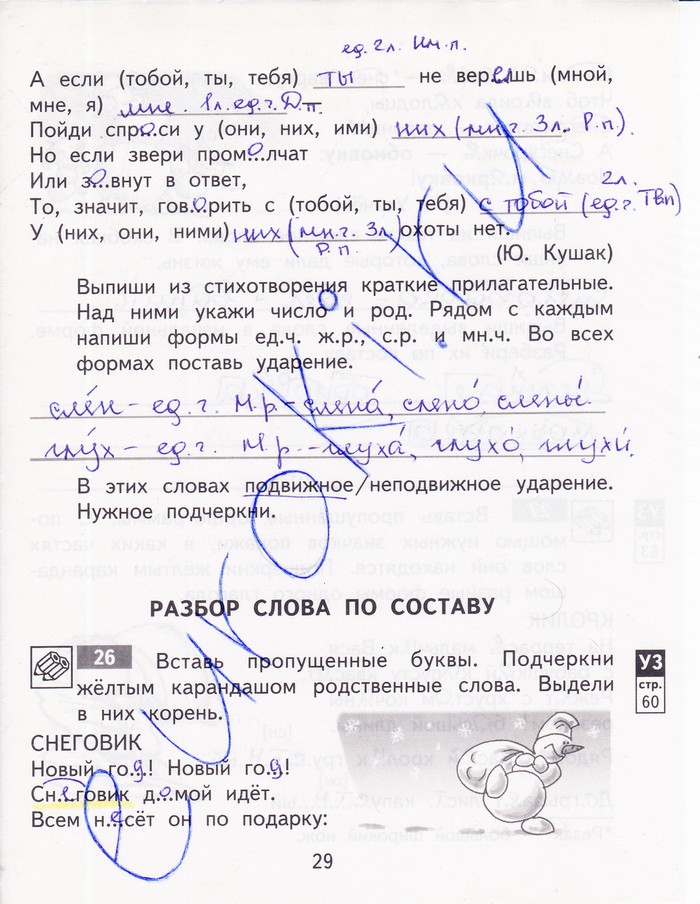 ед. 2л. Им.п.
А если (тобой, ты, тебя) ты не веришь (мной,
мне, я) мне 1л. ед.ч. Дп.
Пойди спроси у (они, них, ими) них (мн.ч. 3л. Р.п.).
Но если звери промолчат
Или зевнут в ответ,
2л.
То, значит, говорить с (тобой, ты, тебя) с тобой (ед.ч. Твп)
У (них, они, ними) них (мн.ч. 3л.) охоты нет.
Р.п.
(Ю. Кушак)
Выпиши из стихотворения краткие прилагательные.
Над ними укажи число и род. Рядом с каждым
напиши формы ед.ч. ж.р., с.р. и мн.ч. Во всех
формах поставь ударение.
слеп - ед.ч. м.р. - слепа́, слепо́ слепы́
глу́х - ед.ч. м.р. - глуха́, глухо́, глухи́.
В этих словах подвижное/неподвижное ударение.
Нужное подчеркни.
РАЗБОР СЛОВА ПО СОСТАВУ
26 Вставь пропущенные буквы. Подчеркни
УЗ
жёлтым карандашом родственные слова. Выдели
стр.
в них корень.
60
СНЕГОВИК
Новый го.д.! Новый го.д.!
Сн.е.говик д.о.мой идёт.
Всем н.е.сёт он по подарку:
29